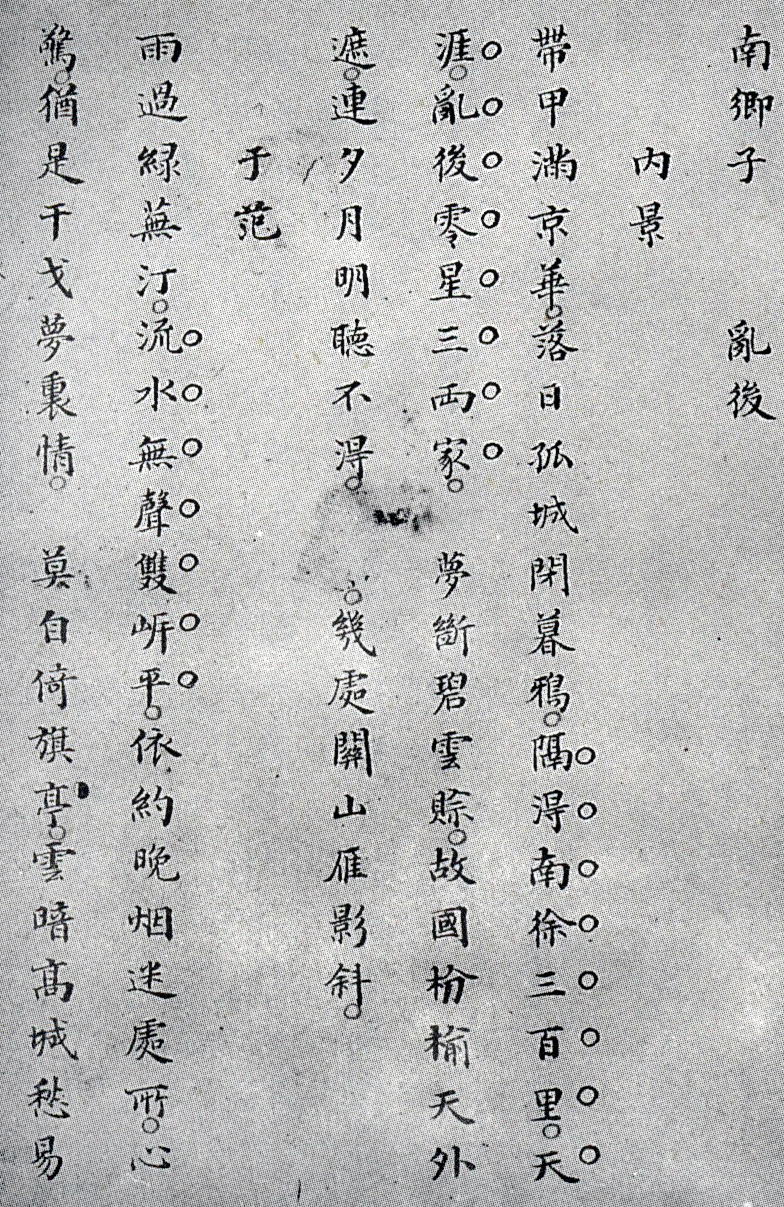 南鄉子　亂後
內景
帶甲滿京華。落日孤城閉暮鴉。隔得南徐三百里。天
涯。亂後零星三両家。　夢斷碧雲賒。故國枌榆天外
遮。連夕月明聽不得。　。幾處關山雁影斜。
于范
雨過綠蕪汀。流水無聲雙岍平。依約晚烟迷處所。心
驚。猶是干戈夢裏情。　莫自倚旗亭。雲暗高城愁易